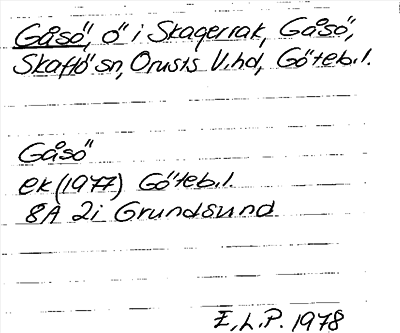 Gåsö, ö i Skagerrak, Gåsö,
Skaftö sn, Orusts V. hd, Göteb. l.
Gåsö
ek (1977) Göteb. l.
8A 2i Grundsund
E. L. P. 1978